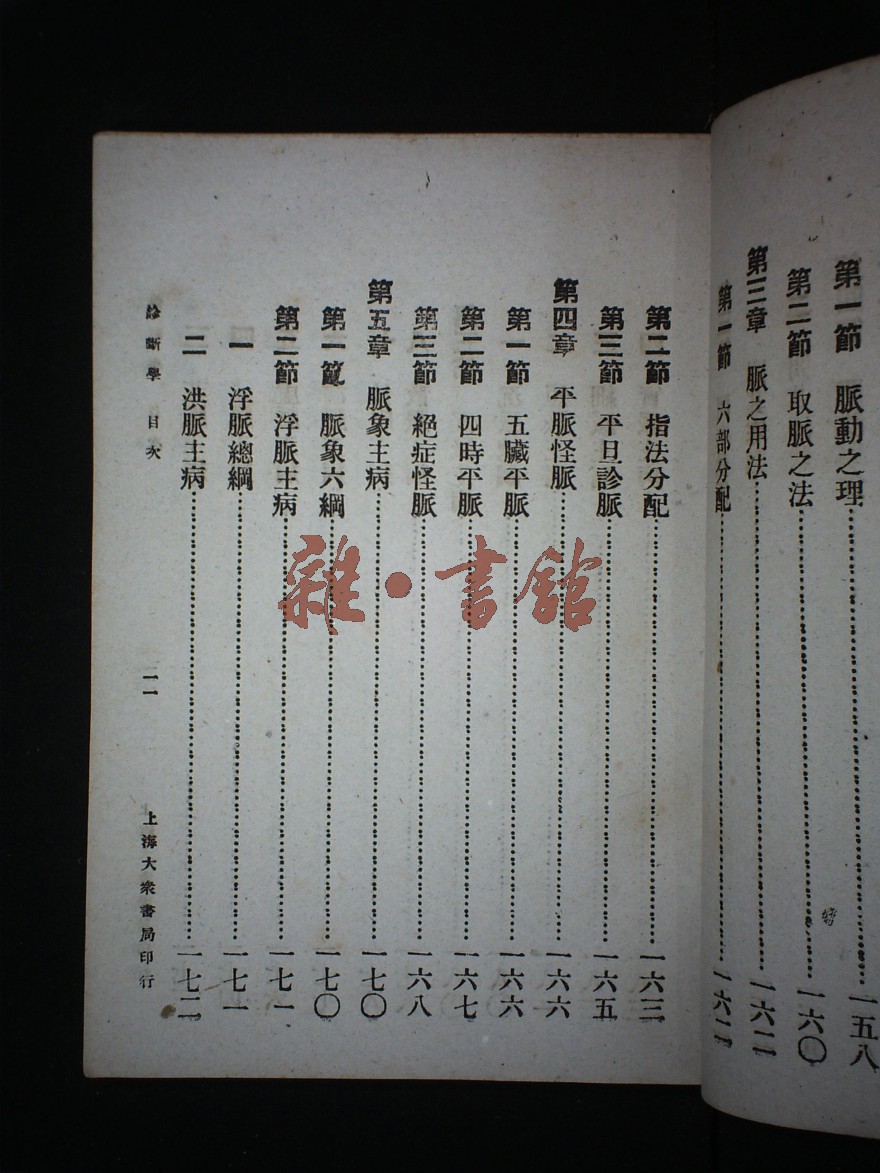 第一節　脈動之理……一五八
第二節　取脈之法……一六〇
第三章　脈之用法……一六二
第一節　六部分配……一六二
第二節　指法分配……一六三
第三節　平旦診脈……一六五
第四章　平脈怪脈……一六六
第一節　五臟平脈……一六六
第二節　四時平脈……一六七
第三節　絕症怪脈……一六八
第五章　脈象主病……一七〇
第一節　脈象六綱……一七〇
第二節　浮脈主病……一七一
一　浮脈總綱……一七一
二　洪脈主病……一七二
診斷學　目次　一一　上海大衆書局印行
雜·書館